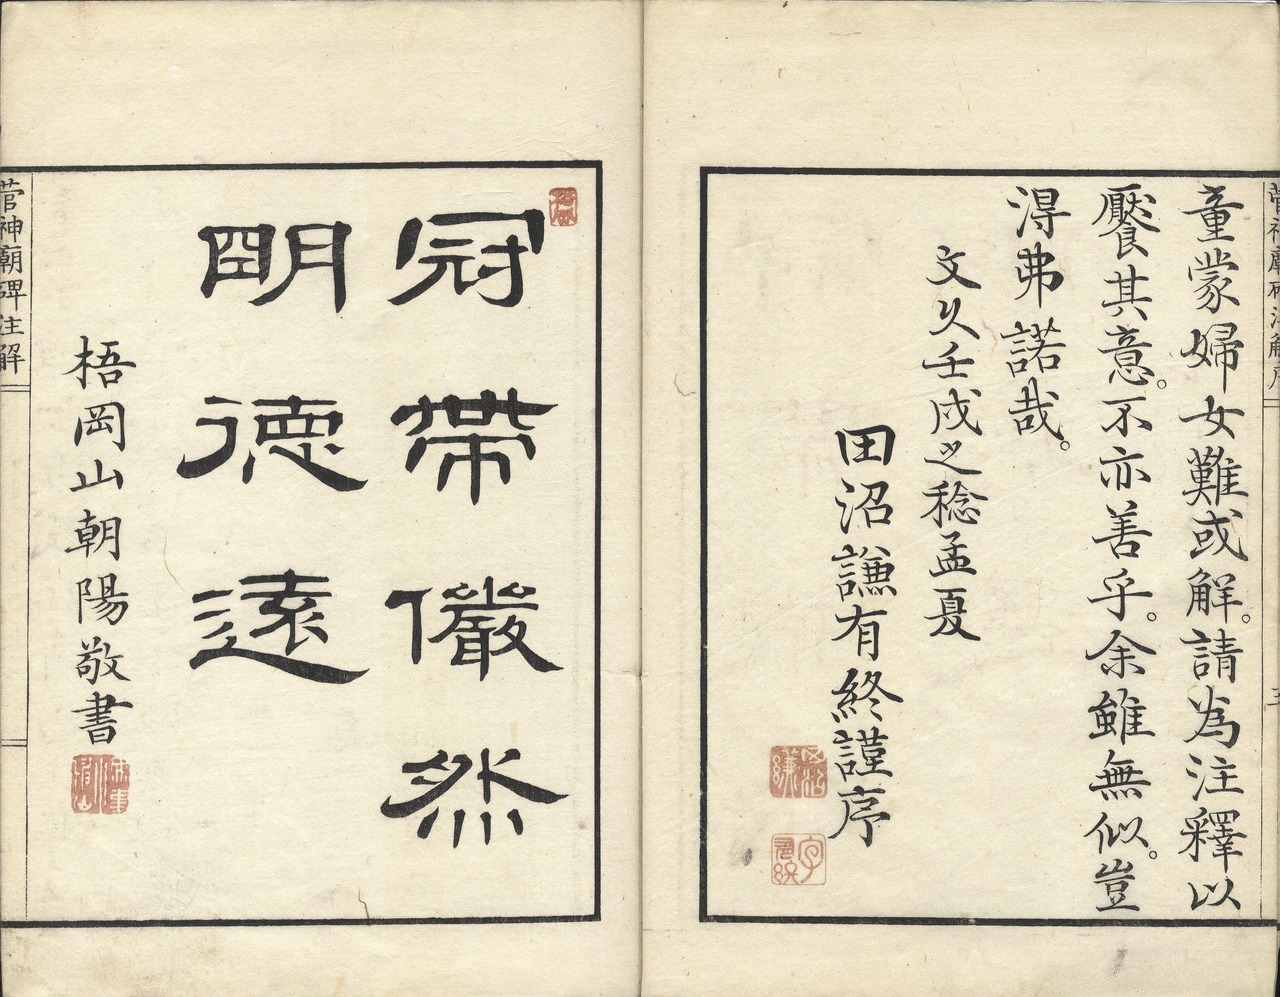 菅神廟碑注解序
童蒙婦女難或解。請為注釋以
饜其意。不亦善乎。余雖無似。豈
得弗諾哉。
文久壬戌之稔孟夏
田沼謙有終謹序
冠帶儼然
明德遠
梧岡山朝陽敬書
菅神廟碑注解